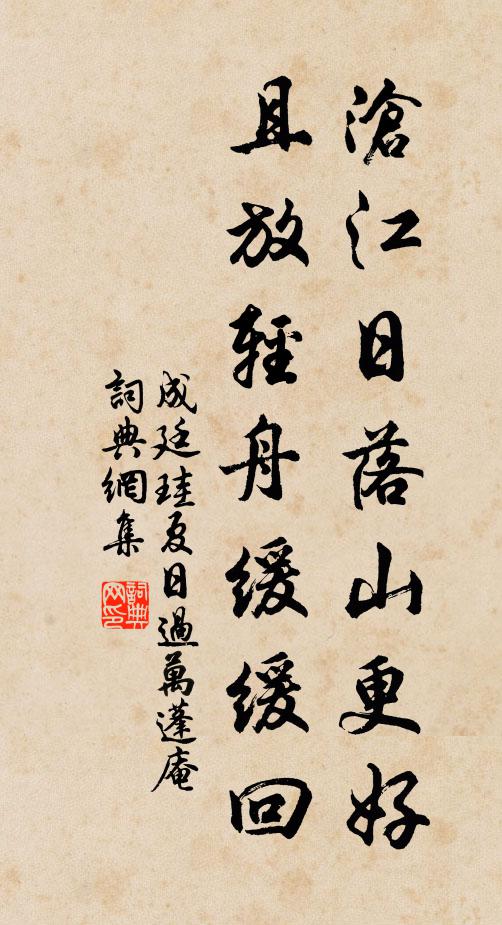 滄江日落山更好
且放輕舟緩緩回
成廷珪夏日過萬蓬庵
詞典網集
詞典网印